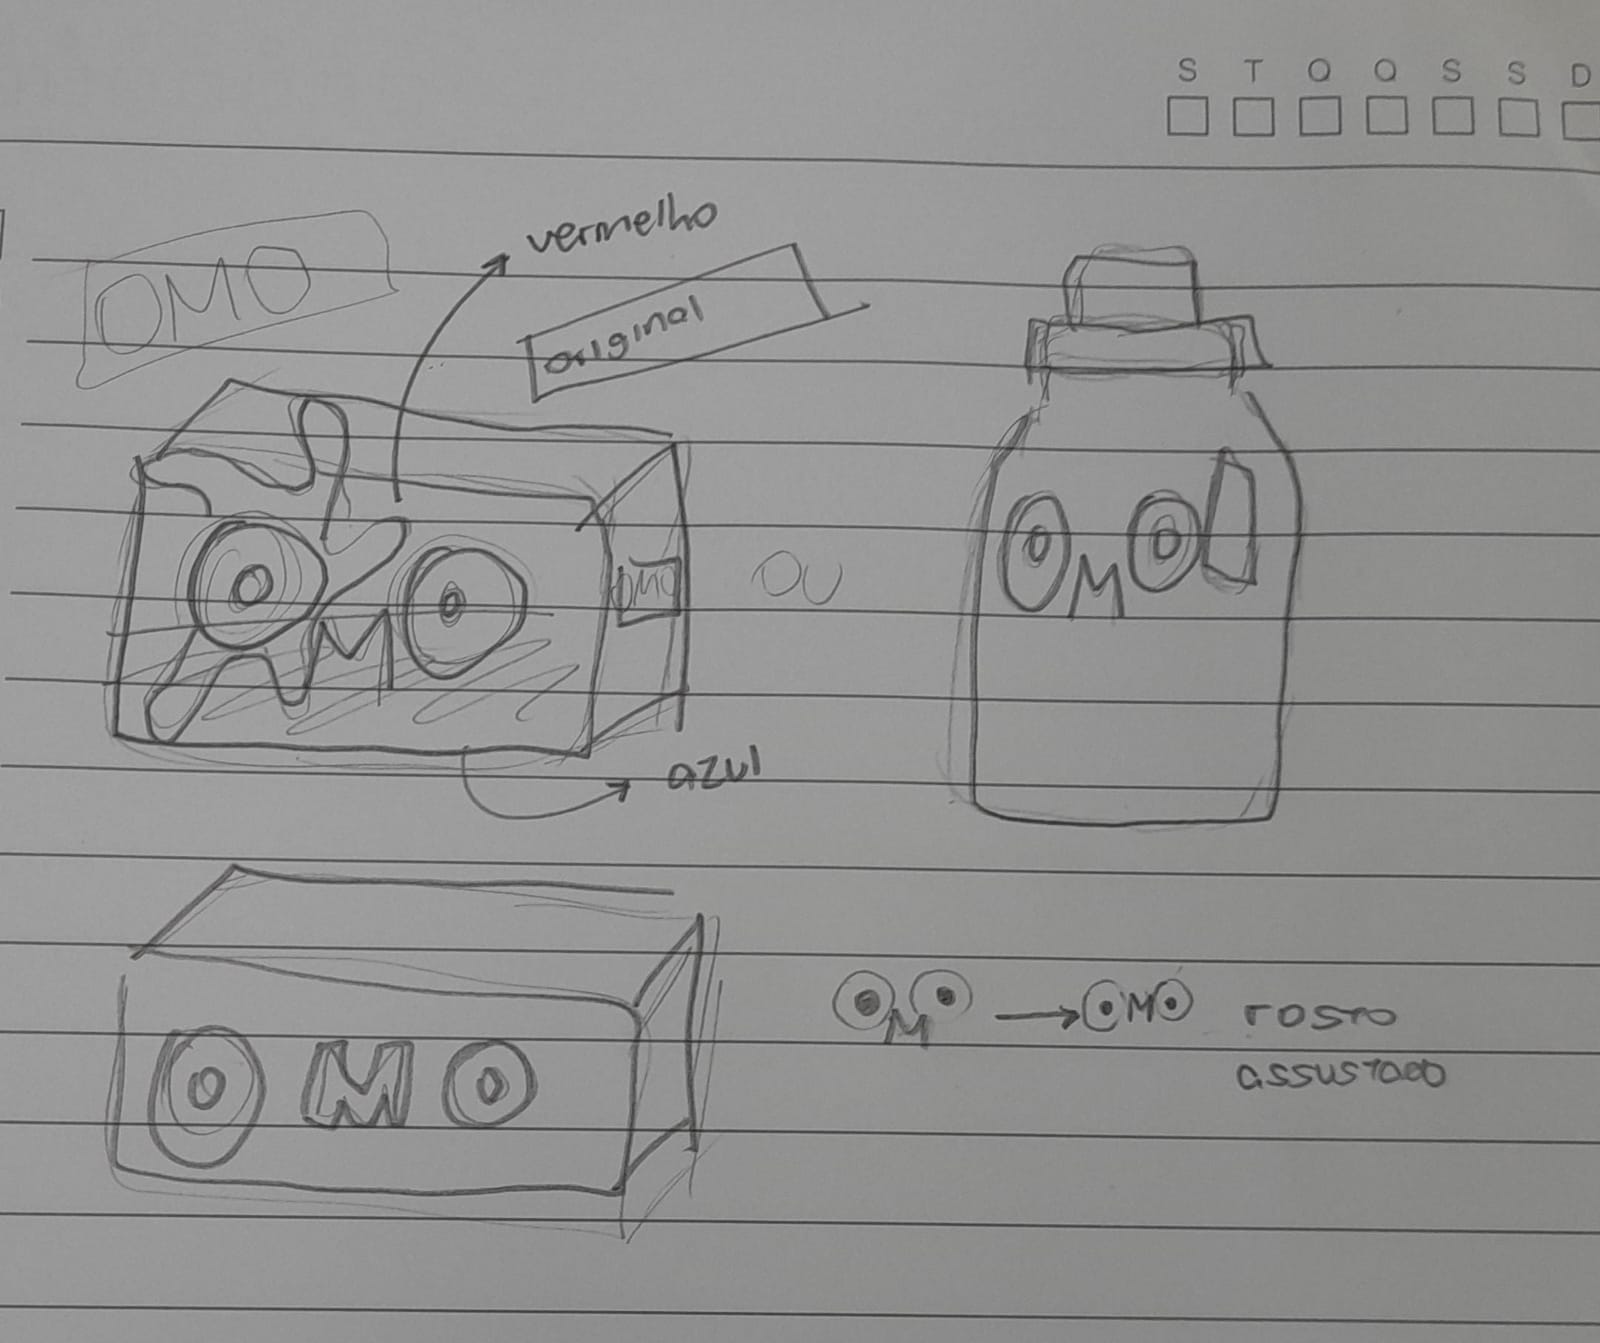 S T Q Q S S D
vermelho
OMO
original
OMO
OMO
OU
OMO
azul
OMO
OMO → OMO rosto
assustado